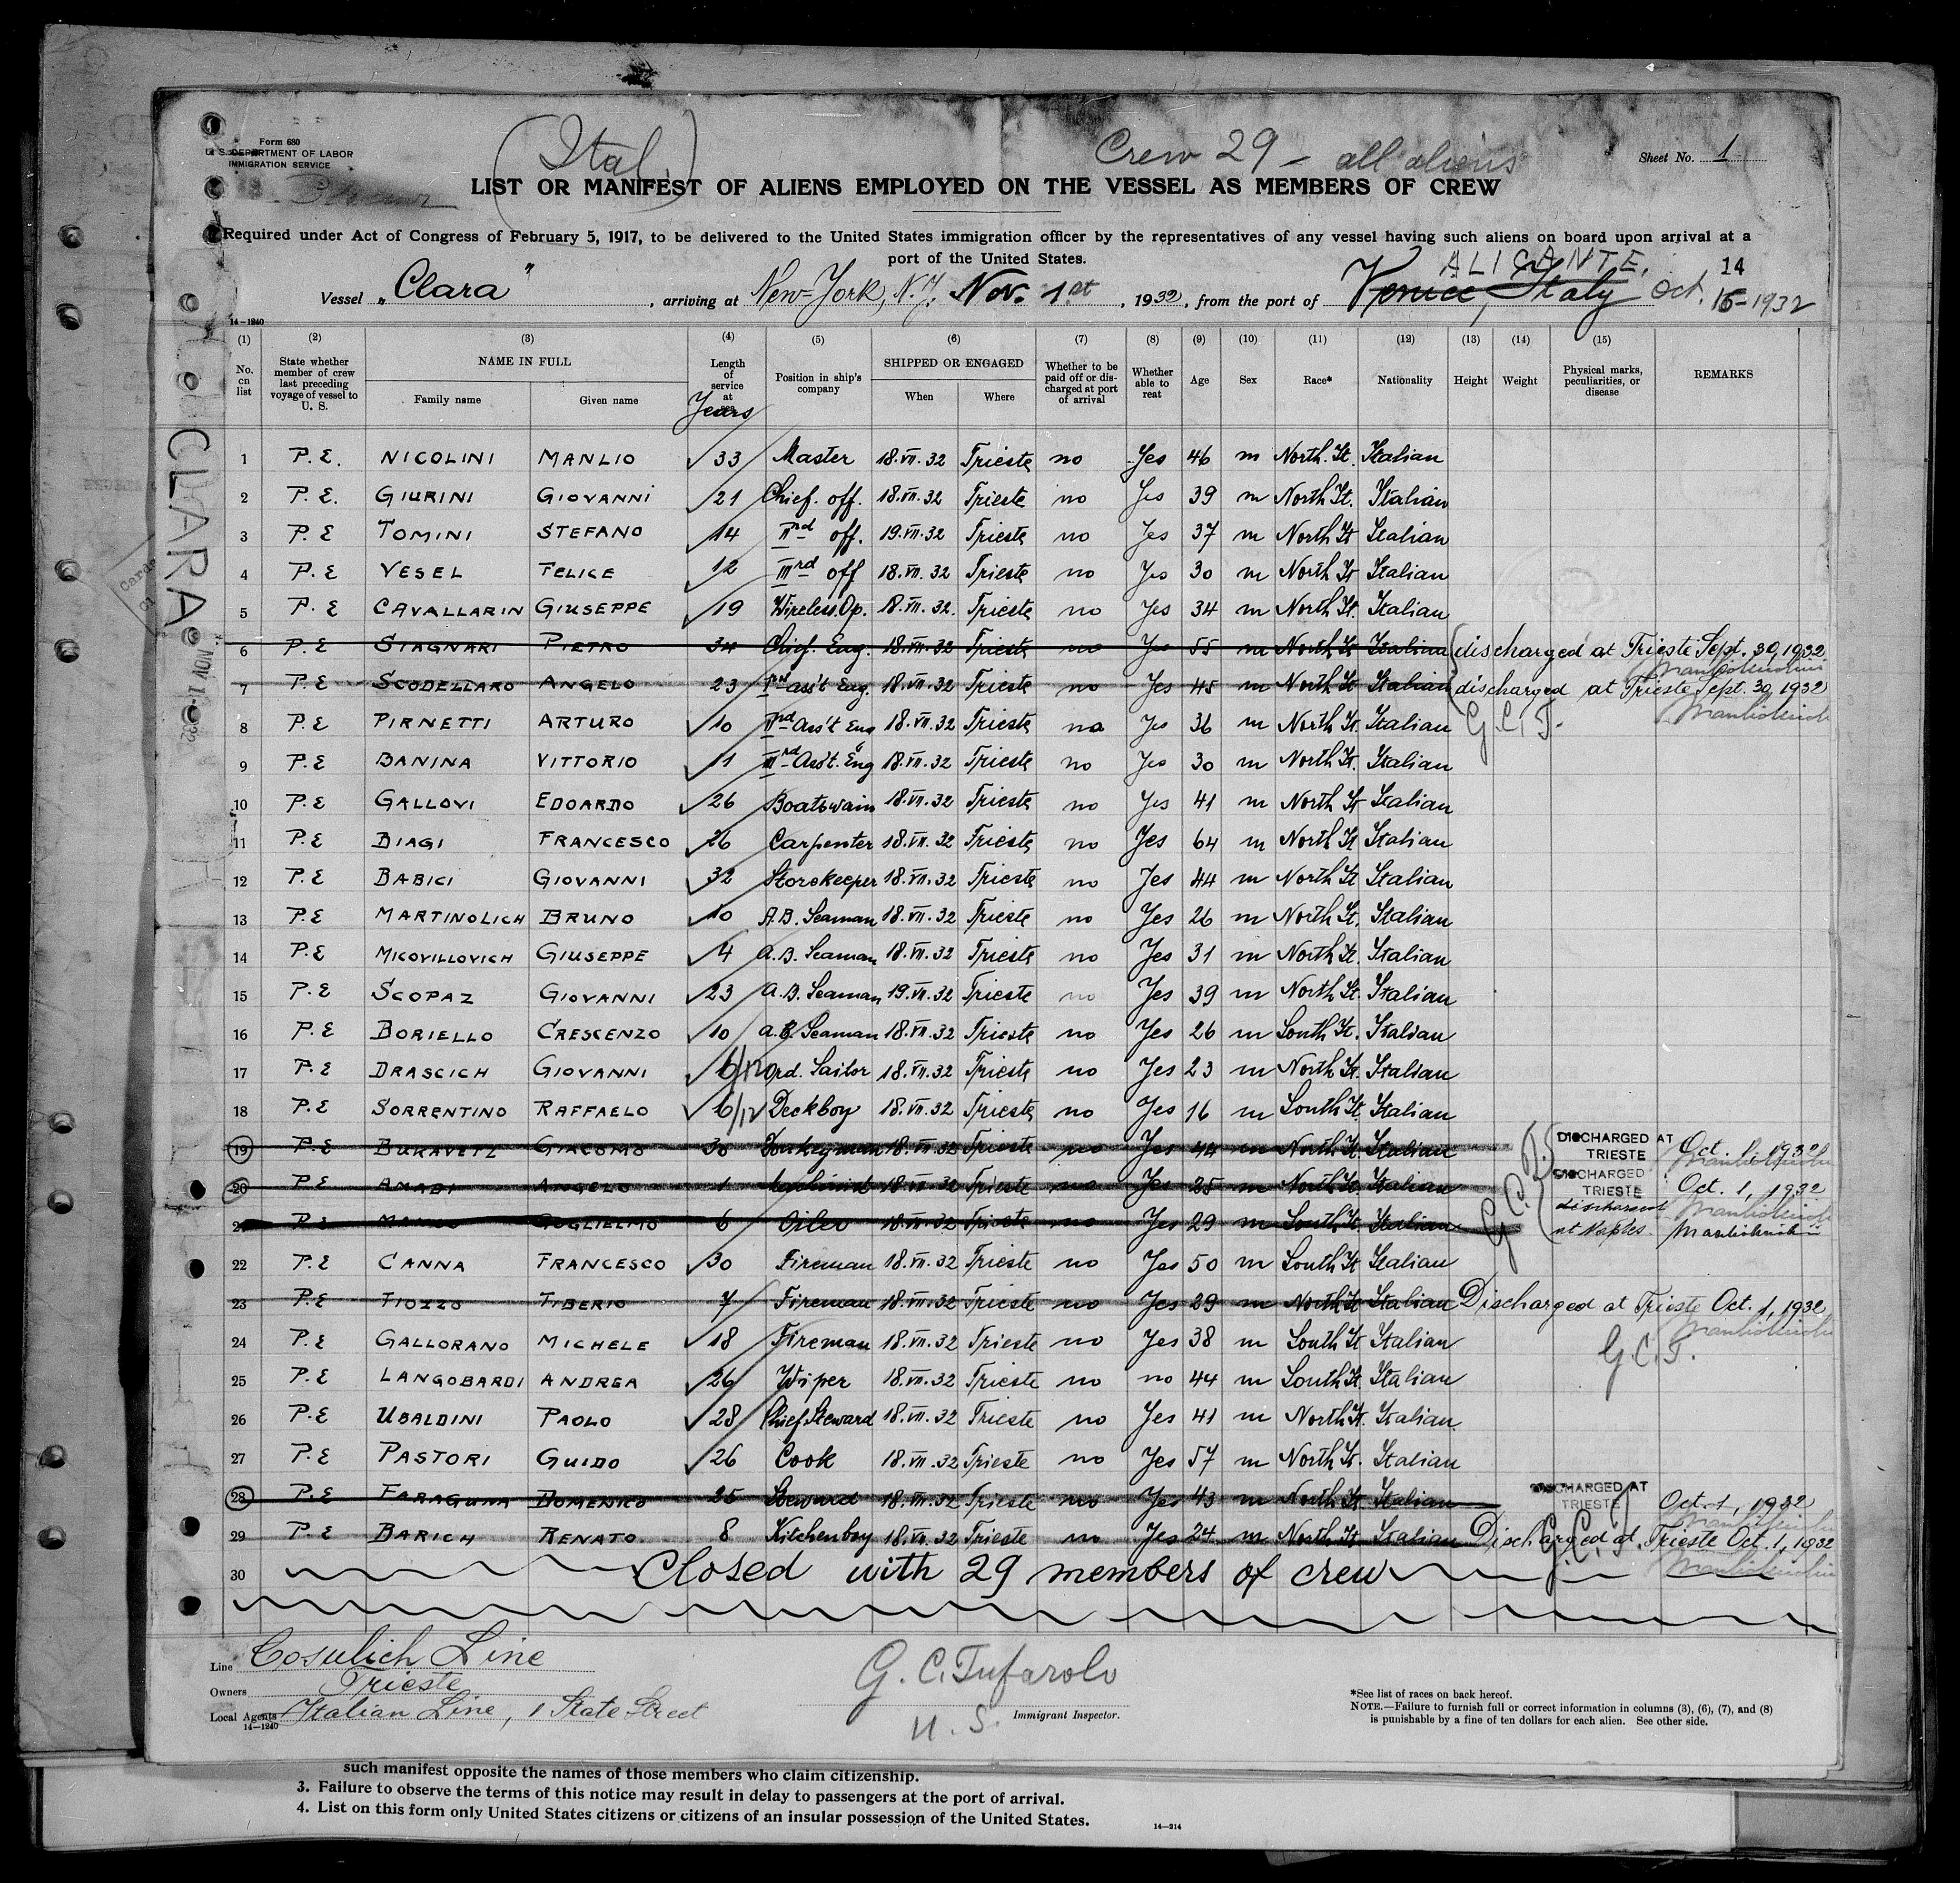 Form 680
U. S. DEPARTMENT OF LABOR
IMMIGRATION SERVICE
(Ital.)
Crew 29 - all aliens
Sheet No. 1
LIST OR MANIFEST OF ALIENS EMPLOYED ON THE VESSEL AS MEMBERS OF CREW
Required under Act of Congress of February 5, 1917, to be delivered to the United States immigration officer by the representatives of any vessel having such aliens on board upon arrival at a
port of the United States.
ALICANTE, 14
Vessel „Clara", arriving at New-York, N.Y. Nov. 1st, 1932, from the port of Venice, Italy Oct. 15-1932
14-1240
CLARA
NOV 1 - 32
(1) (2) (3) (4) (5) (6) (7) (8) (9) (10) (11) (12) (13) (14) (15)
No. on list
State whether member of crew last preceding voyage of vessel to U. S.
NAME IN FULL
Family name
Given name
Length of service at
Years
Position in ship's company
SHIPPED OR ENGAGED
When
Where
Whether to be paid off or discharged at port of arrival
Whether able to reat
Age
Sex
Race*
Nationality
Height
Weight
Physical marks, peculiarities, or disease
REMARKS
1 P.E. NICOLINI MANLIO 33 Master 18.VII.32 Trieste no Yes 46 m North.It. Italian
2 P.E. GIURINI GIOVANNI 21 Chief. off. 18.VII.32 Trieste no Yes 39 m North It. Italian
3 P.E TOMINI STEFANO 14 IInd off. 19.VII.32 Trieste no Yes 37 m North It Italian
4 P.E VESEL FELICE 12 IIIrd off 18.VII.32 Trieste no Yes 30 m North It Italian
5 P.E CAVALLARIN GIUSEPPE 19 Wireless.Op. 18.VII.32. Trieste no Yes 34 m North It. Italian
6 P.E STAGNARI PIETRO 34 Chief. Eng. 18.VII.32 Trieste no Yes 55 m North It Italian discharged at Trieste Sept. 30, 1932
7 P.E SCODELLARO ANGELO 23 Ist ass't Eng. 18.VII.32 Trieste no Yes 45 m North It Italian discharged at Trieste Sept. 30, 1932
8 P.E PIRNETTI ARTURO 10 IInd Ass't Eng 18.VII.32 Trieste no Yes 36 m North It. Italian G.C.T.
9 P.E BANINA VITTORIO 11 IIIrd Ass't. Eng 18.VII.32 Trieste no Yes 30 m North It. Italian
10 P.E GALLOVI EDOARDO 26 Boatswain 18.VII.32 Trieste no Yes 41 m North It Italian
11 P.E BIAGI FRANCESCO 26 Carpenter 18.VII.32 Trieste no Yes 64 m North It Italian
12 P.E BABICI GIOVANNI 32 Storekeeper 18.VII.32 Trieste no Yes 44 m North It Italian
13 P.E MARTINOLICH BRUNO 10 A.B. Seaman 18.VII.32 Trieste no Yes 26 m North It. Italian
14 P.E MICOVILLOVICH GIUSEPPE 4 A.B. Seaman 18.VII.32 Trieste no Yes 31 m North It. Italian
15 P.E SCOPAZ GIOVANNI 23 A.B. Seaman 19.VII.32 Trieste no Yes 39 m North It. Italian
16 P.E BORIELLO CRESCENZO 10 a.B. Seaman 18.VII.32 Trieste no Yes 26 m South It. Italian
17 P.E DRASCICH GIOVANNI 6/12 Ord. Sailor 18.VII.32 Trieste no Yes 23 m North It. Italian
18 P.E SORRENTINO RAFFAELO 6/12 Deckboy 18.VII.32 Trieste no Yes 16 m South It. Italian
19 P.E GIACOMO 30 Donkeyman 18.VII.32 Trieste no Yes 44 m North It. Italian DISCHARGED AT TRIESTE Oct. 1, 1932
20 P.E ANGELO 1 18.VII.32 Trieste no Yes 25 m North It. Italian DISCHARGED TRIESTE Oct. 1, 1932
21 P.E GUGLIELMO 6 Oiler 18.VII.32 Trieste no Yes 29 m South It. Italian G.C.T. discharged at Naples
22 P.E CANNA FRANCESCO 30 Fireman 18.VII.32 Trieste no Yes 50 m South It Italian
23 P.E TIOZZO TIBERIO 7 Fireman 18.VII.32 Trieste no Yes 29 m North It Italian Discharged at Trieste Oct. 1, 1932
24 P.E GALLORANO MICHELE 18 Fireman 18.VII.32 Trieste no Yes 38 m South It Italian G.C.T.
25 P.E LANGOBARDI ANDREA 26 Wiper 18.VII.32 Trieste no no 44 m South It. Italian
26 P.E UBALDINI PAOLO 28 Chief Steward 18.VII.32 Trieste no Yes 41 m North It. Italian
27 P.E PASTORI GUIDO 26 Cook 18.VII.32 Trieste no Yes 57 m North It. Italian
28 P.E FARAGUNA DOMENICO 25 Steward 18.VII.32 Trieste no Yes 43 m North It Italian DISCHARGED AT TRIESTE Oct. 1, 1932
29 P.E BARICH RENATO 8 Kitchenboy 18.VII.32 Trieste no Yes 24 m North It Italian Discharged at Trieste Oct. 1, 1932
G.C.T.
30 Closed with 29 members of crew
Line Cosulich Line
Owners Trieste
Local Agents Italian Line, 1 State Street
14-1240
G. C. Tufarolo
U. S. Immigrant Inspector.
*See list of races on back hereof.
NOTE.—Failure to furnish full or correct information in columns (3), (6), (7), and (8)
is punishable by a fine of ten dollars for each alien. See other side.
such manifest opposite the names of those members who claim citizenship.
3. Failure to observe the terms of this notice may result in delay to passengers at the port of arrival.
4. List on this form only United States citizens or citizens of an insular possession of the United States.
14-214